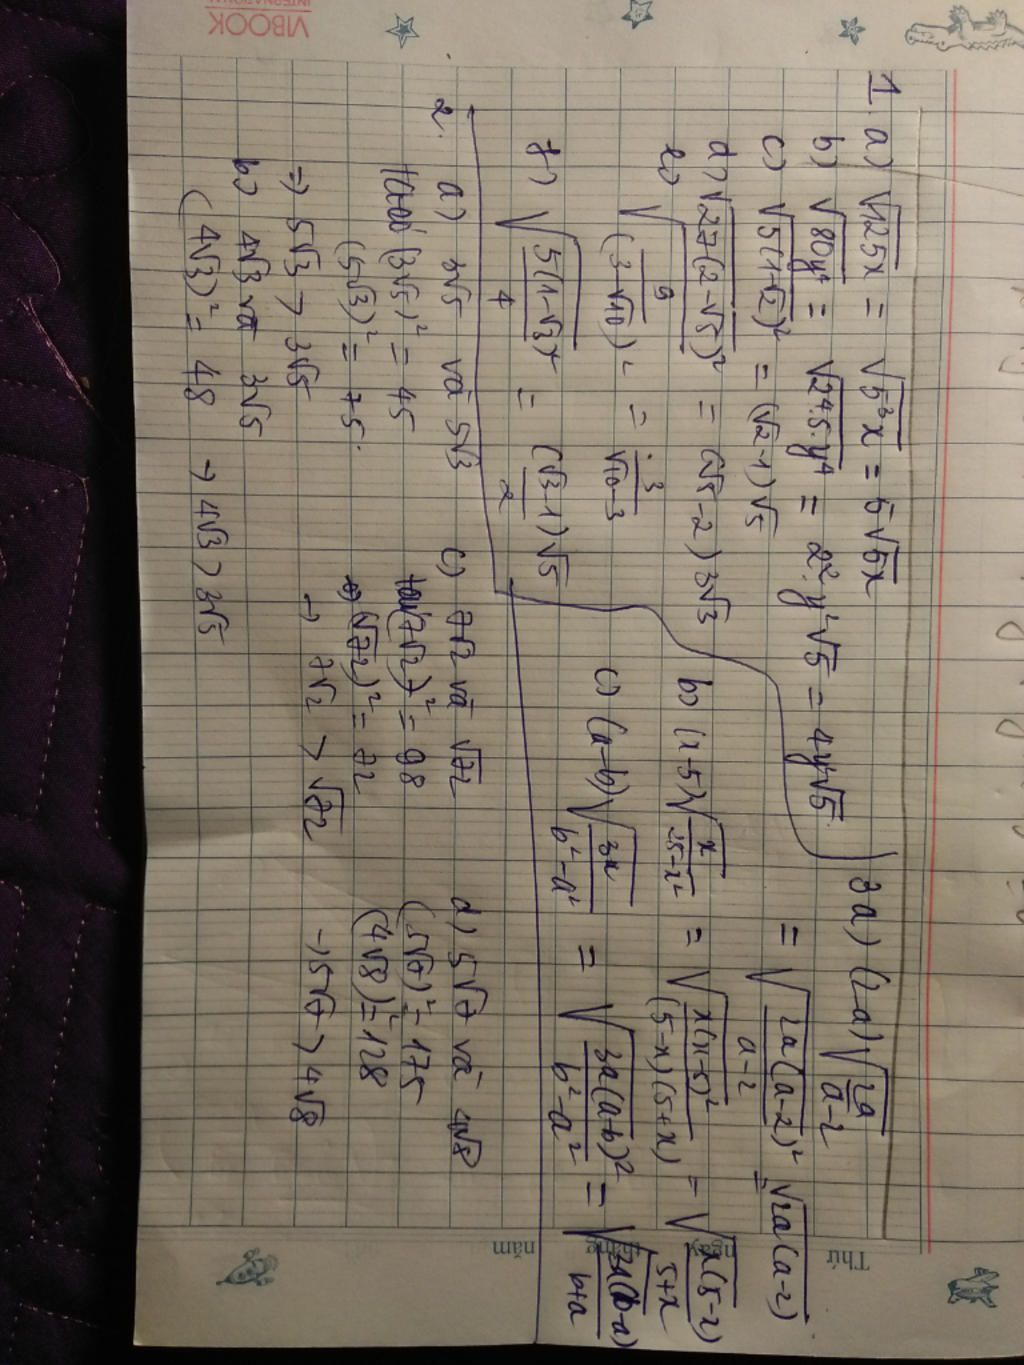 VIBOOK
INTERNATIONAL
Thứ
ngày
tháng
năm
1 a) √125x = √5³x = 5√5x
b) √80y⁴ = √2⁴.5.y⁴ = 2².y²√5 = 4y²√5
c) √5(1-√2)² = (√2-1)√5
d) √27(2-√5)² = (√5-2)3√3
e) √9/(3-√10)² = 3/√10-3
f) √5(1-√3)²/4 = (√3-1)√5/2
2. a) 3√5 và 5√3
(3√5)² = 45
(5√3)² = 75.
=> 5√3 > 3√5
b) 4√3 và 3√5
(4√3)² = 48 → 4√3 > 3√5
c) 7√2 và √72
(7√2)² = 98
(√72)² = 72
→ 7√2 > √72
d) 5√7 và 4√8
(5√7)² = 175
(4√8)² = 128
→ 5√7 > 4√8
3a) (2-a)√2a/a-2
= √2a(a-2)²/a-2 = √2a(a-2)
b) (x-5)√x/25-x² = √x(x-5)²/(5-x)(5+x) = √x(5-x)/5+x
c) (a-b)√3a/b²-a² = √3a(a-b)²/b²-a² = √3a(b-a)/b+a